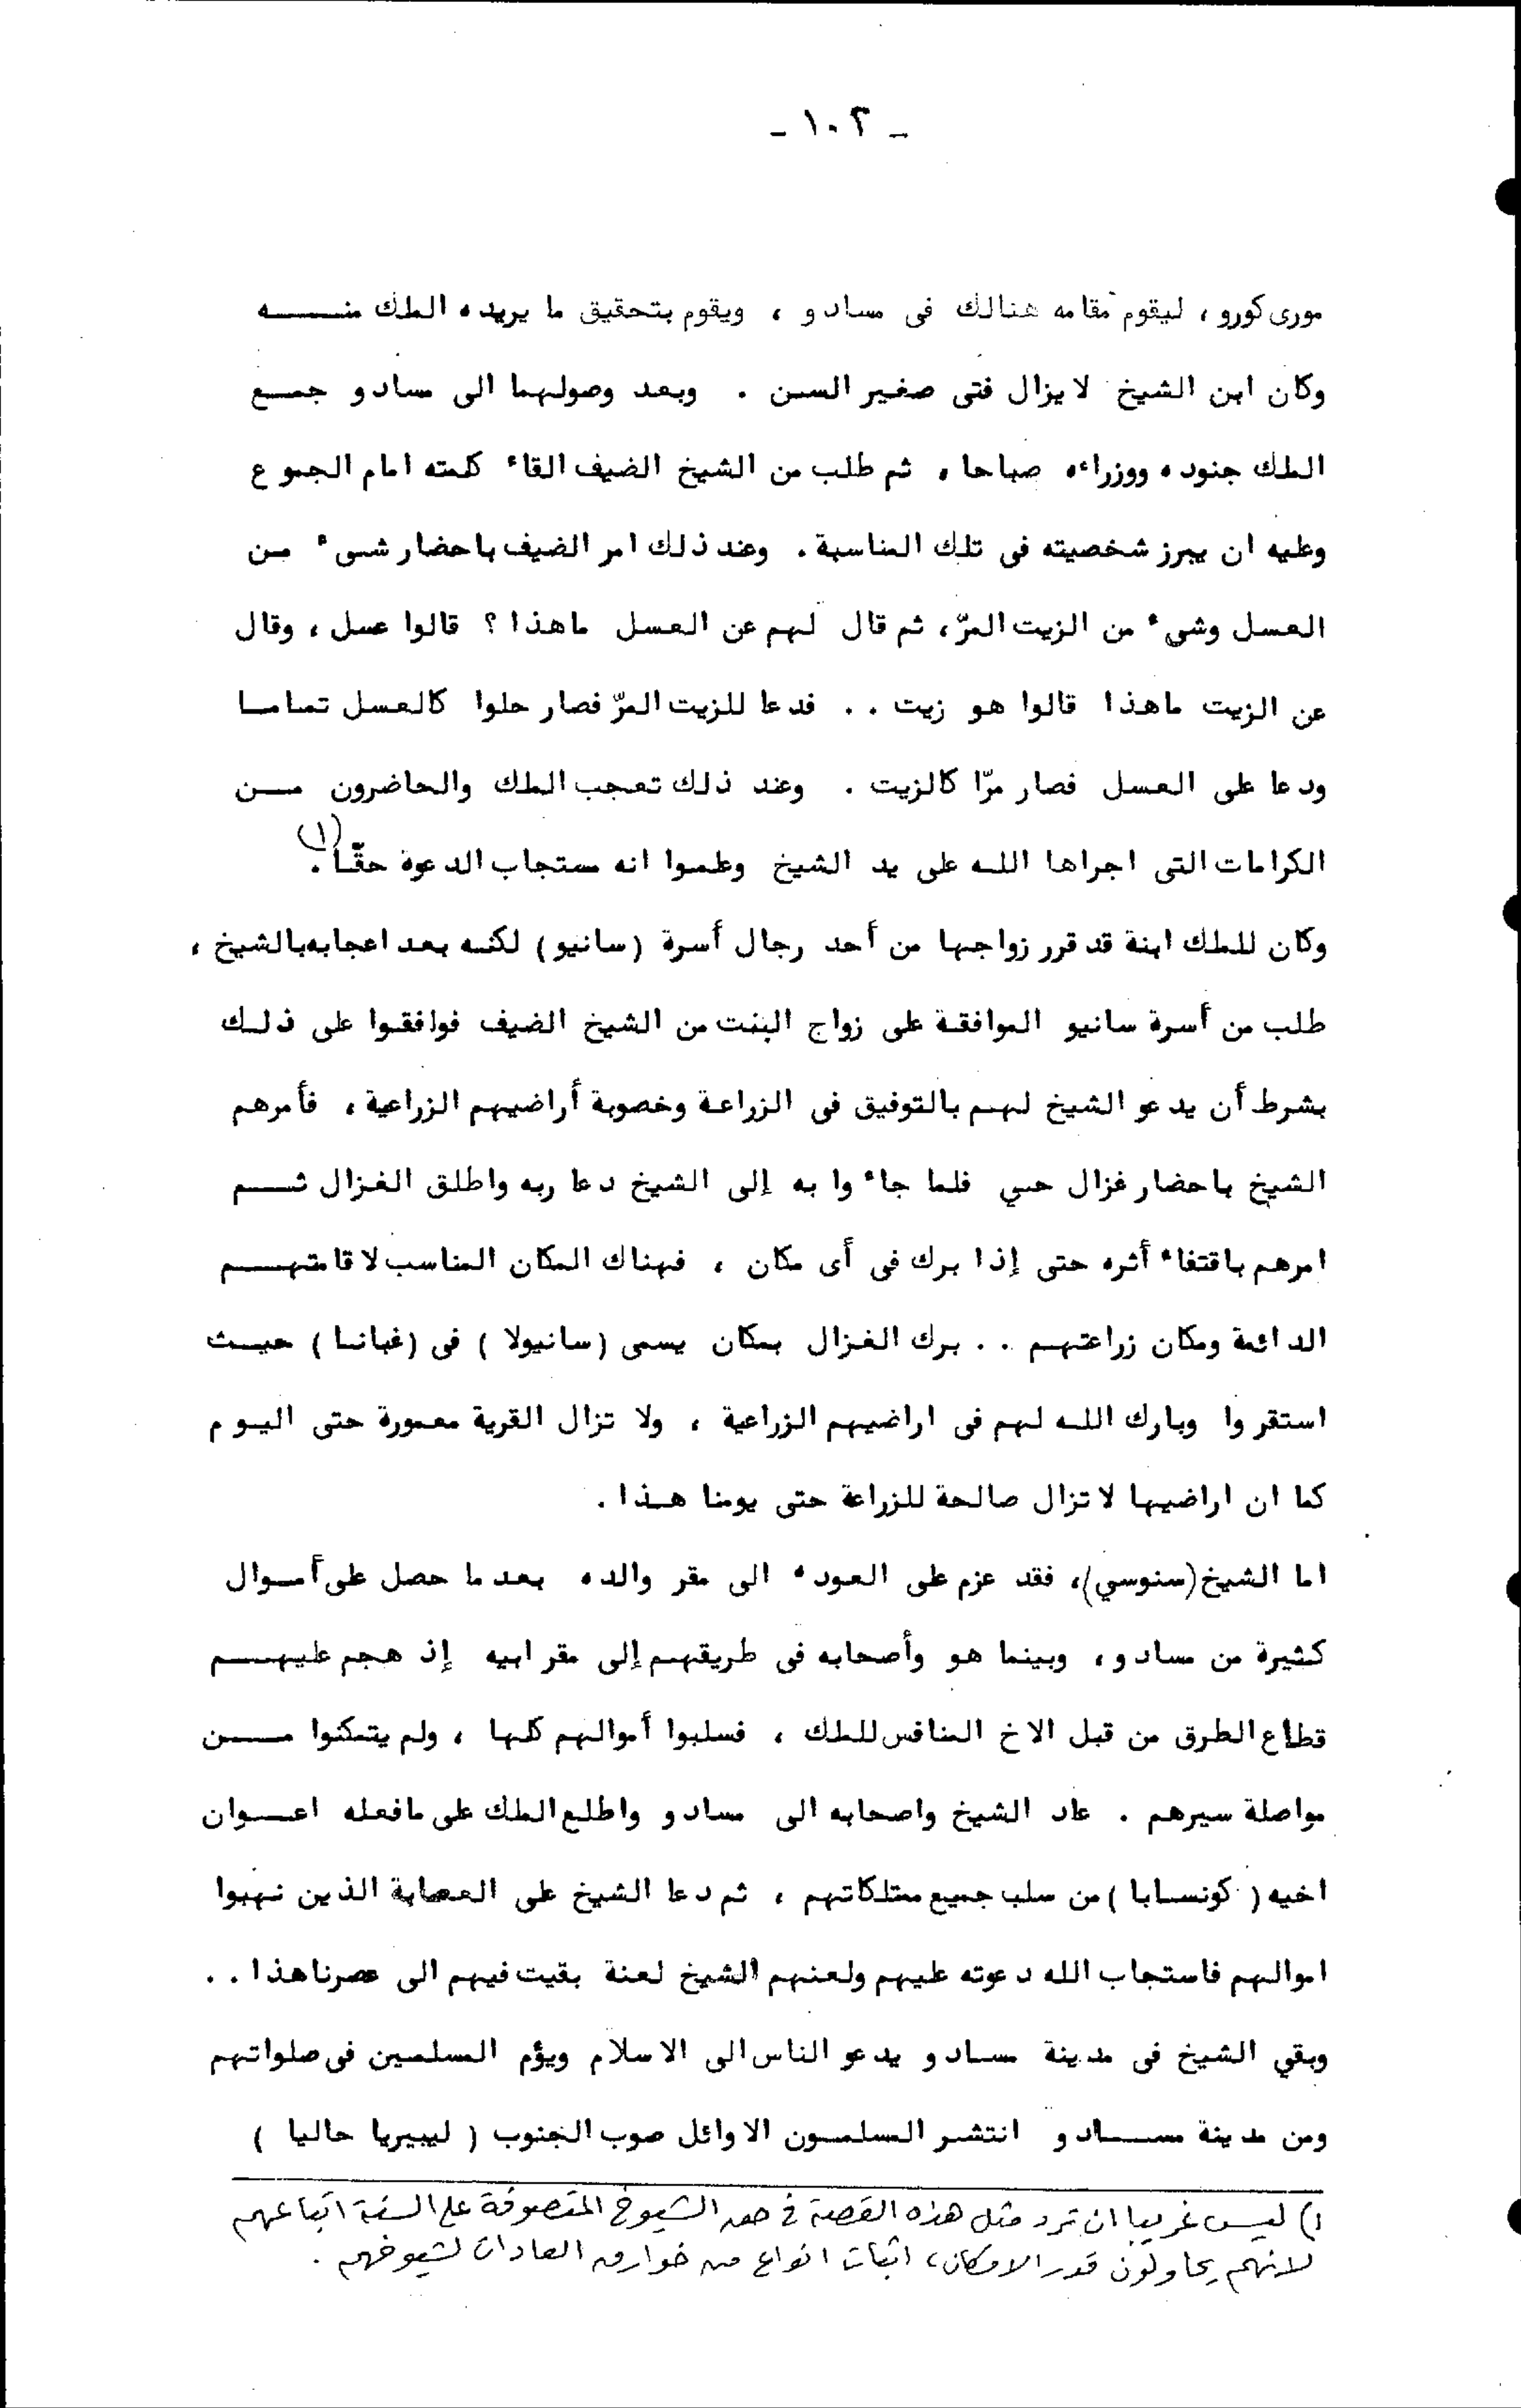 - ١٠٢ -
مورى كورو ، ليقوم مقامه هنالك فى مسادو ، ويقوم بتحقيق ما يريده الملك منـــه
وكان ابن الشيخ لا يزال فتى صغير السن . وبعد وصولهما الى مسادو جمـع
الملك جنوده ووزراءه صباحا ، ثم طلب من الشيخ الضيف القاء كلمته امام الجموع
وعليه ان يبرز شخصيته فى تلك المناسبة . وعند ذلك امر الضيف باحضار شىء مـن
العسل وشىء من الزيت المرّ ، ثم قال لهم عن العسل ماهذا ؟ قالوا عسل ، وقال
عن الزيت ماهذا قالوا هو زيت . . فدعا للزيت المرّ فصار حلوا كالعسل تمامـا
ودعا على العسل فصار مرّا كالزيت . وعند ذلك تعجب الملك والحاضرون مـــن
الكرامات التى اجراها اللـه على يد الشيخ وعلمـوا انه مستجاب الدعوة حقّـاً (١) .
وكان للملك ابنة قد قرر زواجها من أحد رجال أسرة (سانيو) لكنـه بعد اعجابه بالشيخ ،
طلب من أسرة سانيو الموافقـة على زواج البنت من الشيخ الضيف فوافقـوا على ذلـك
بشرط أن يدعو الشيخ لهـم بالتوفيق فى الزراعـة وخصوبة أراضيهم الزراعية ، فأمرهم
الشيخ باحضار غزال حي فلما جاءوا به إلى الشيخ دعا ربه واطلق الغـزال ثـــم
امرهم باقتفاء أثره حتى إذا برك فى أى مكان ، فهناك المكان المناسب لاقامتهـــم
الدائمة ومكان زراعتهـم . . برك الغـزال بمكان يسمى (سانيولا ) فى (غبانـا ) حيـث
استقروا وبارك اللـه لهم فى اراضيهم الزراعية ، ولا تزال القرية معمورة حتى اليـوم
كما ان اراضيها لا تزال صالحة للزراعة حتى يومنا هـذا .
اما الشيخ (سنوسي) ، فقد عزم على العودة الى مقر والده بعد ما حصل على أمـوال
كثيرة من مسادو ، وبينما هو وأصحابه فى طريقهـم إلى مقر ابيه إذ هجم عليهـــم
قطاع الطرق من قبل الاخ المنافس للملك ، فسلبوا أموالهم كلها ، ولم يتمكنوا مـــن
مواصلة سيرهم . عاد الشيخ واصحابه الى مسادو واطلع الملك على مافعله اعـــوان
اخيه ( كونسـابا ) من سلب جميع ممتلكاتهم ، ثم دعا الشيخ على العصابة الذين نهبوا
اموالهم فاستجاب الله دعوته عليهم ولعنهم الشيخ لعنة بقيت فيهم الى عصرنا هذا . .
وبقي الشيخ فى مدينة مسـادو يدعو الناس الى الاسلام ويؤم المسلمـين فى صلواتهم
ومن مدينة مســـادو انتشـر المسلمـون الاوائل صوب الجنوب ( ليبيريا حاليا )
١) ليس غريبا ان ترد مثل هذه القصة في حق الشيوخ المتصوفة على السنة اتباعهم
لانهم يحاولون قدر الامكان ، اثبات انواع من خوارق العادات لشيوخهم .